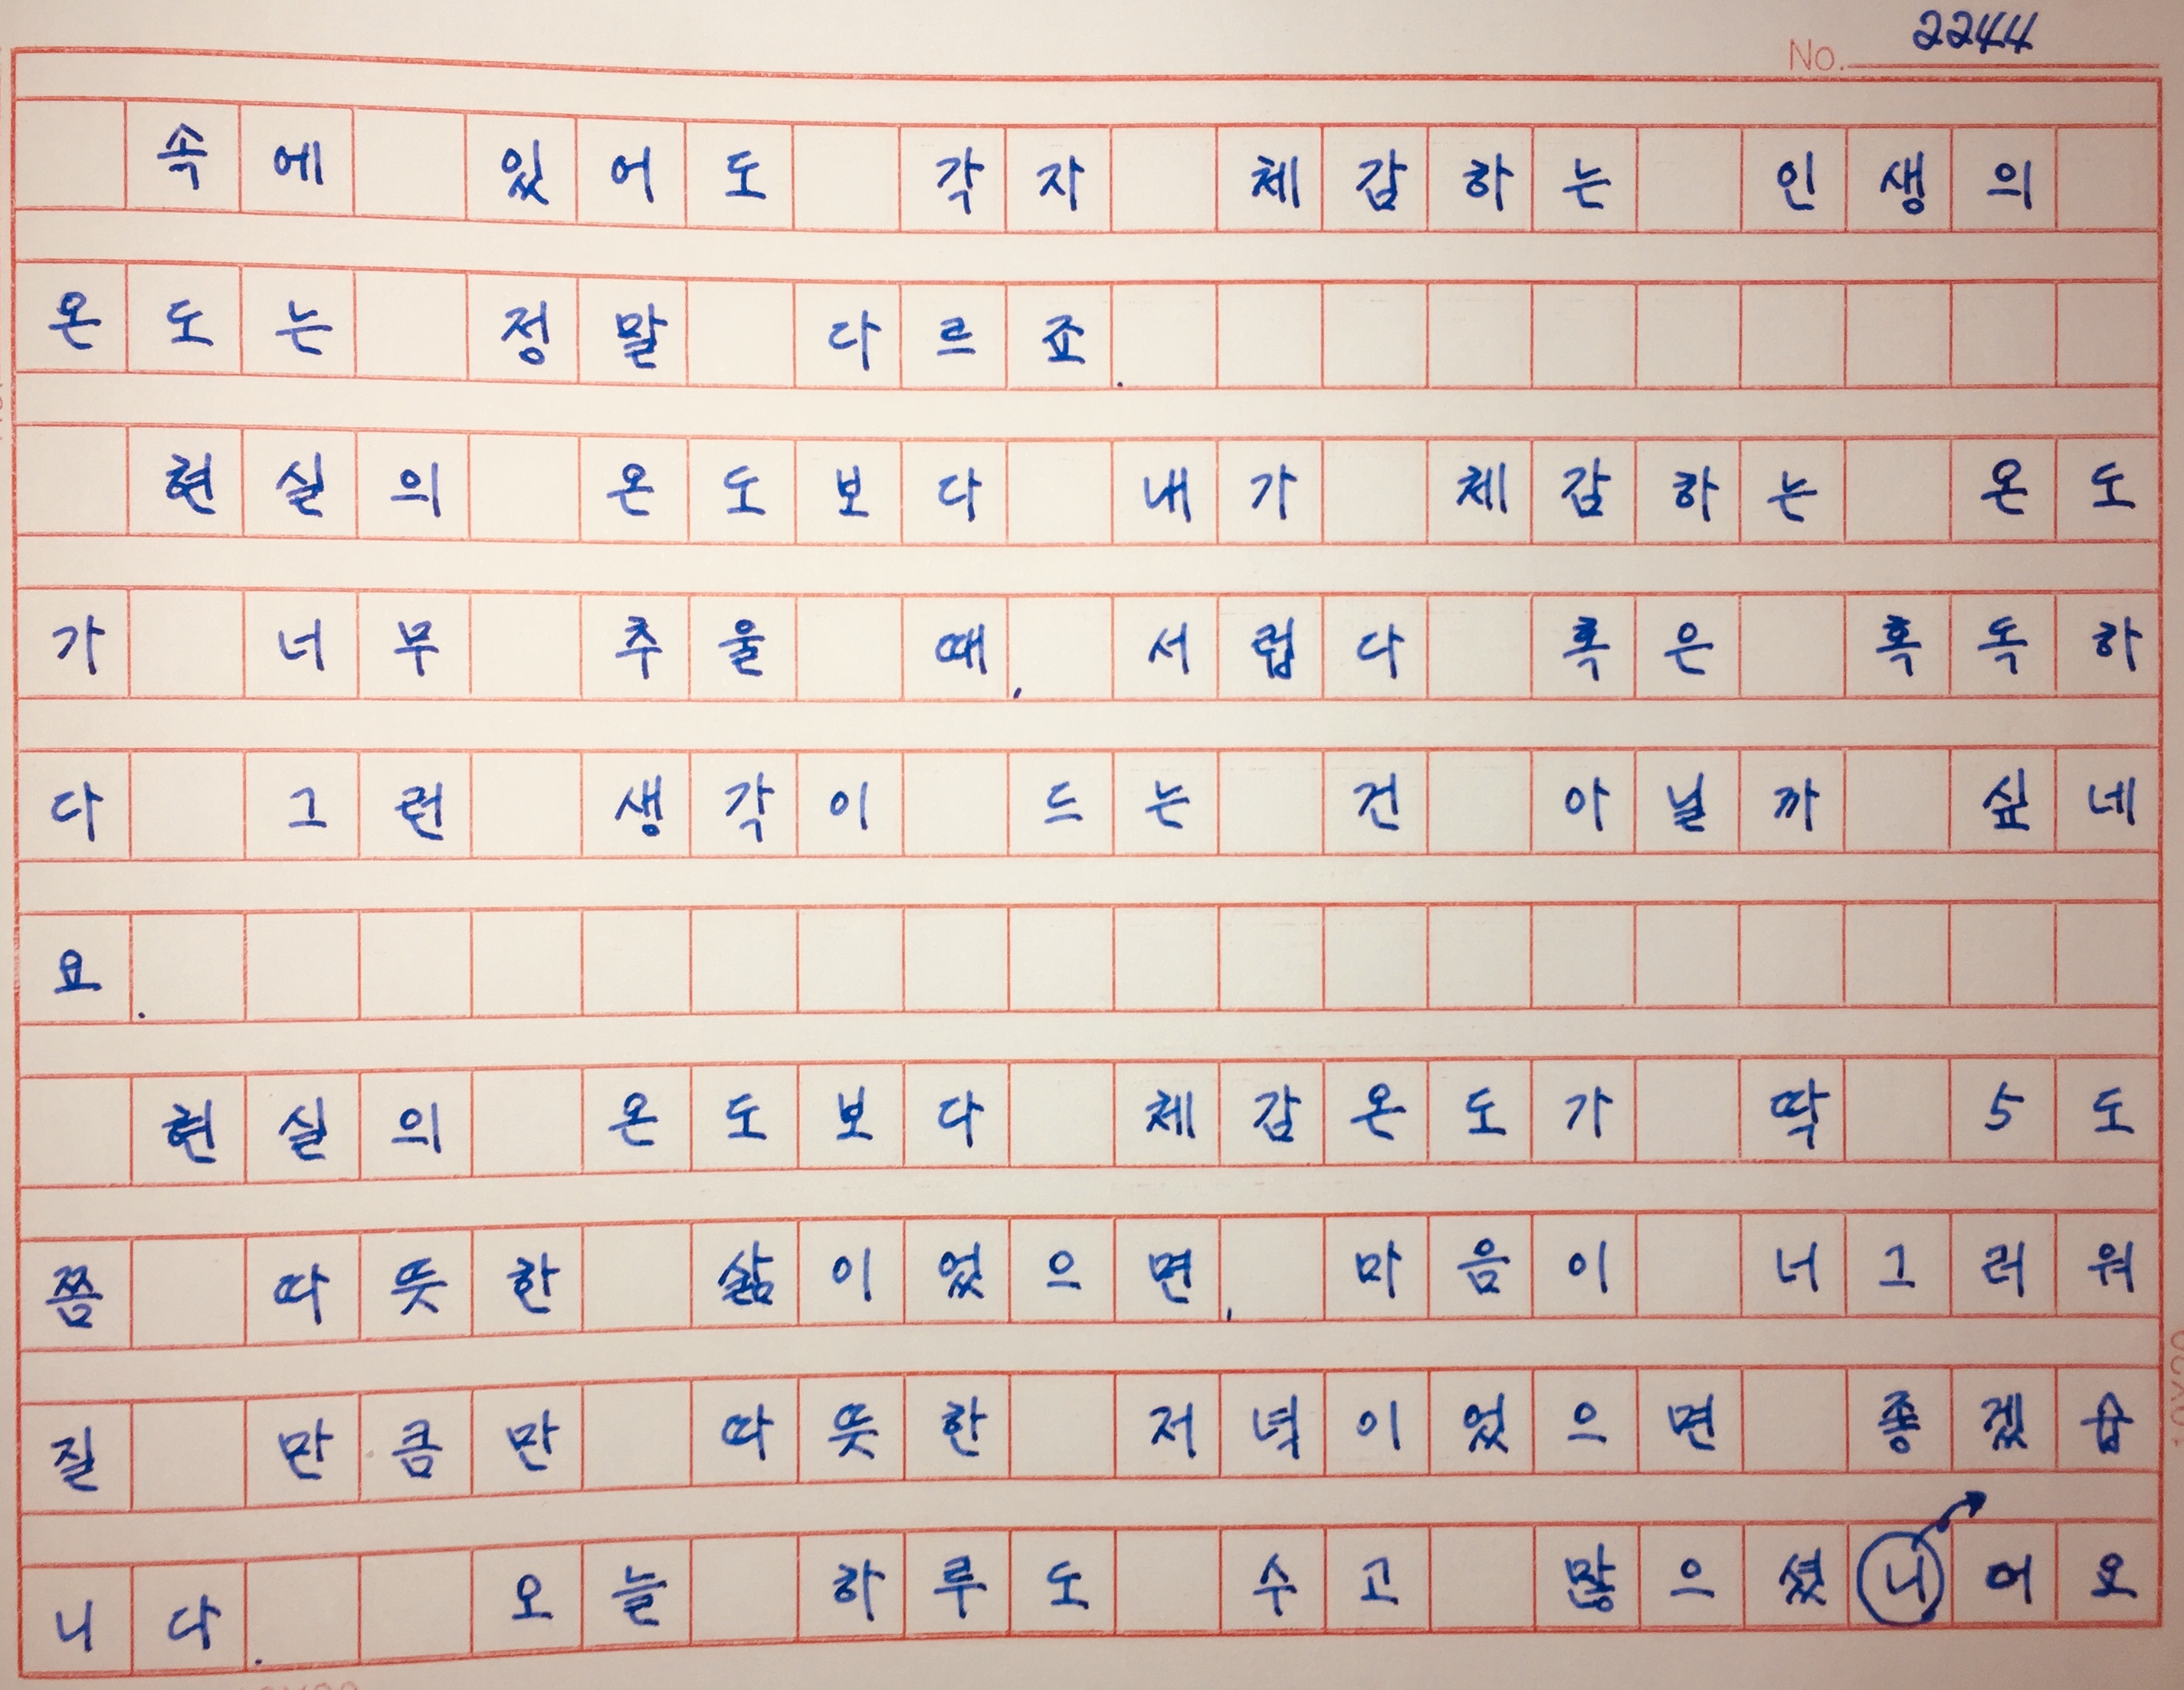 No. 2244
속에 있어도 각자 체감하는 인생의
온도는 정말 다르죠.
현실의 온도보다 내가 체감하는 온도
가 너무 추울 때, 서럽다 혹은 혹독하
다 그런 생각이 드는 건 아닐까 싶네
요.
현실의 온도보다 체감온도가 딱 5도
쯤 따뜻한 삶이었으면, 마음이 너그러워
질 만큼만 따뜻한 저녁이었으면 좋겠습
니다. 오늘 하루도 수고 많으셨니어요